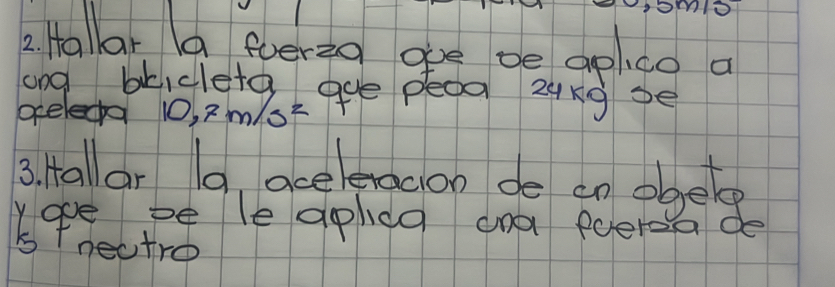 0,5m/s
2. Hallar la fuerza que se aplico a
una bicicleta que pesa 24 Kg se
acelera 10,7 m/s²
3. Hallar la aceleracion de un objeto
y que se le aplica una fuerza de
5 neutro